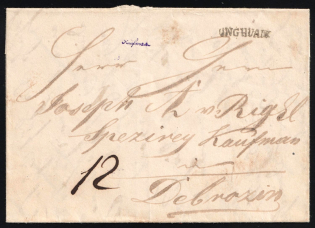 UNGHVAR
Herr Herrn
Joseph A v Rigel
Spezirey Kaufman
a
12
Debrozin